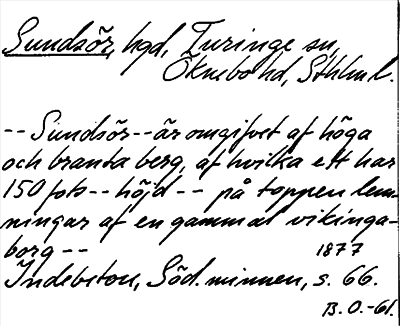 Sundsör, hgd, Turinge sn,
Öknebo hd, Sthlm l.
-- Sundsör -- är omgifvet af höga
och branta berg, af hvilka ett har
150 fots -- höjd -- på toppen lem-
ningar af en gammal vikinga-
borg --
1877
Indebetou, Söd. minnen, s. 66.
B. O. -61.